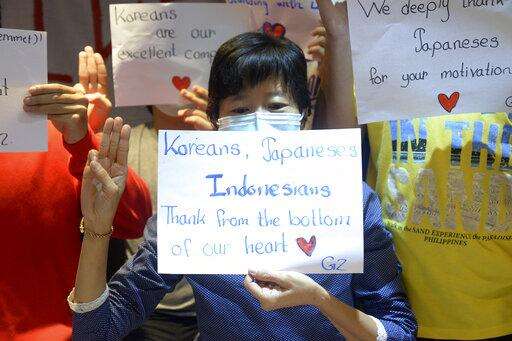 emmet))
Z.
Koreans
are our
excellent com
standing with
We deeply thank
Japaneses
for your motivation
G
Koreans, Japaneses
Indonesians
Thank from the bottom
of our heart
GZ
IN THE
SAND
the SAND EXPERIENCE
PHILIPPINES